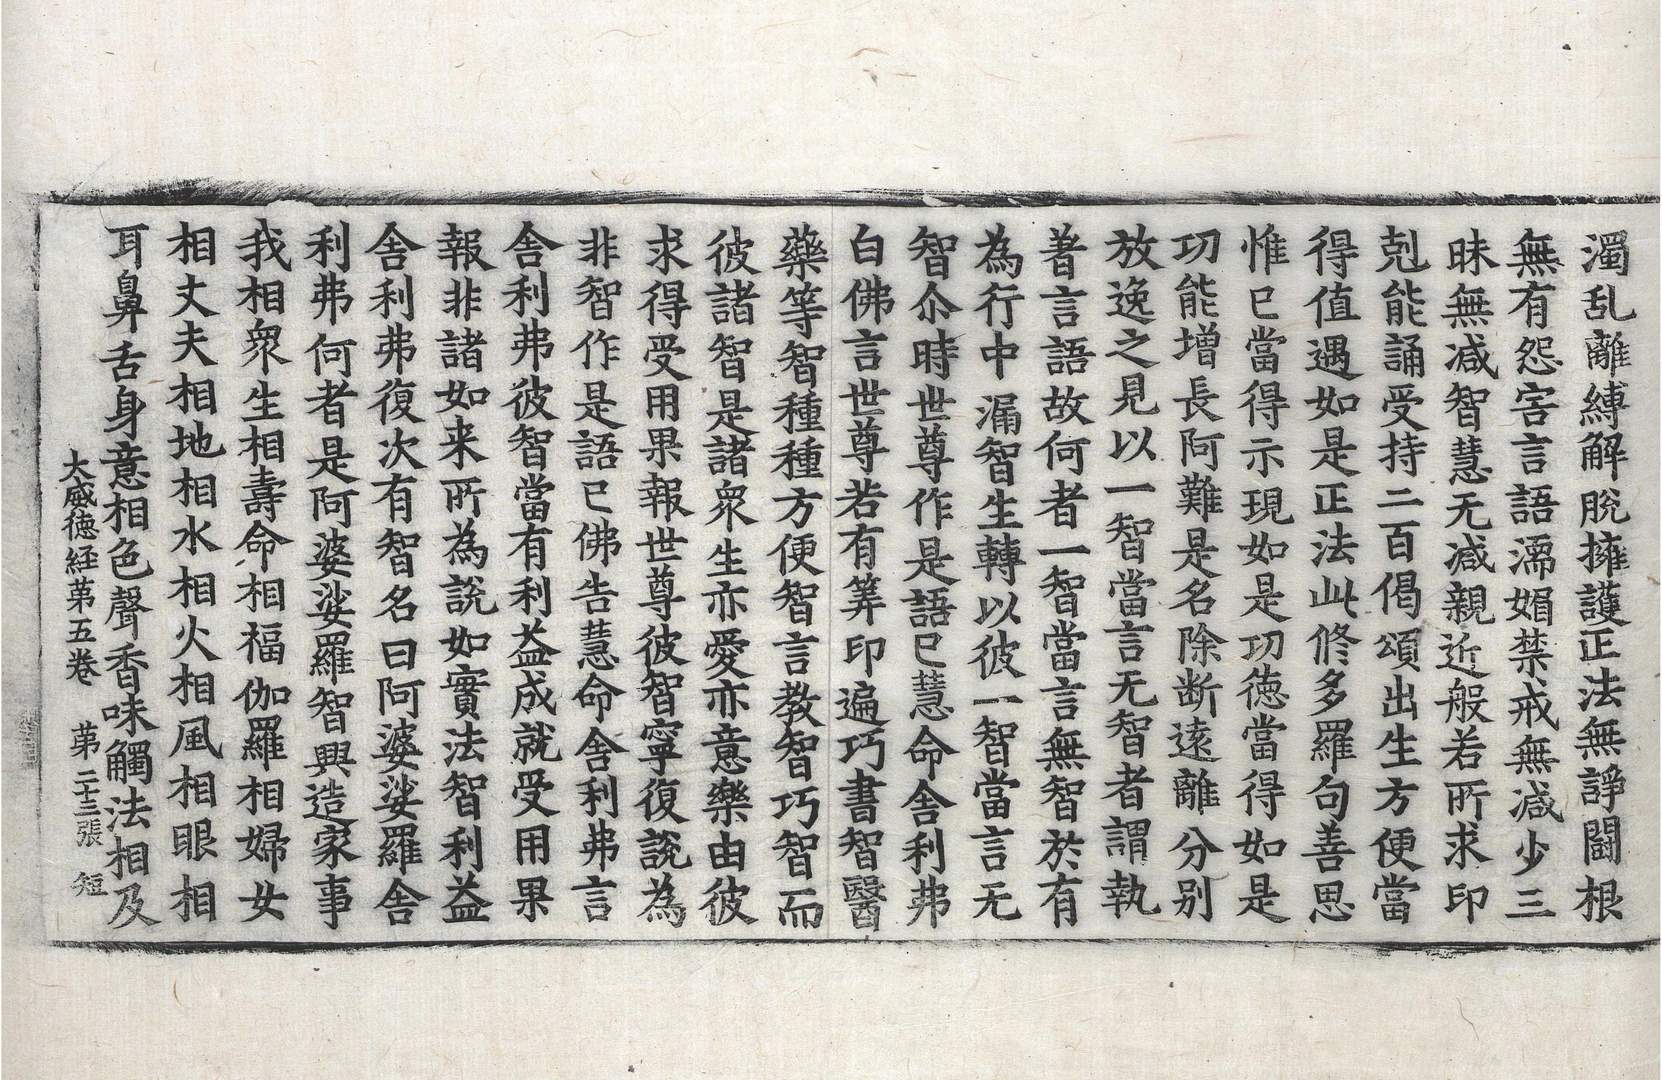 濁乱離縛解脫擁護正法無諍鬪根
無有怨害言語濡媚禁戒無減少三
昧無減智慧无減親近般若所求印
剋能誦受持二百偈頌出生方便當
得值遇如是正法此修多羅句善思
惟已當得示現如是功德當得如是
功能增長阿難是名除断遠離分别
放逸之見以一智當言无智者謂執
著言語故何者一智當言無智於有
為行中漏智生轉以彼一智當言无
智尒時世尊作是語已慧命舍利弗
白佛言世尊若有筭印遍巧書智醫
藥等智種種方便智言教智巧智而
彼諸智是諸衆生亦愛亦意樂由彼
求得受用果報世尊彼智寧復說為
非智作是語已佛告慧命舍利弗言
舍利弗彼智當有利益成就受用果
報非諸如来所為說如實法智利益
舍利弗復次有智名曰阿婆娑羅舍
利弗何者是阿婆娑羅智興造家事
我相衆生相壽命相福伽羅相婦女
相丈夫相地相水相火相風相眼相
耳鼻舌身意相色聲香味觸法相及
大威德経苐五卷 苐二十三張 短